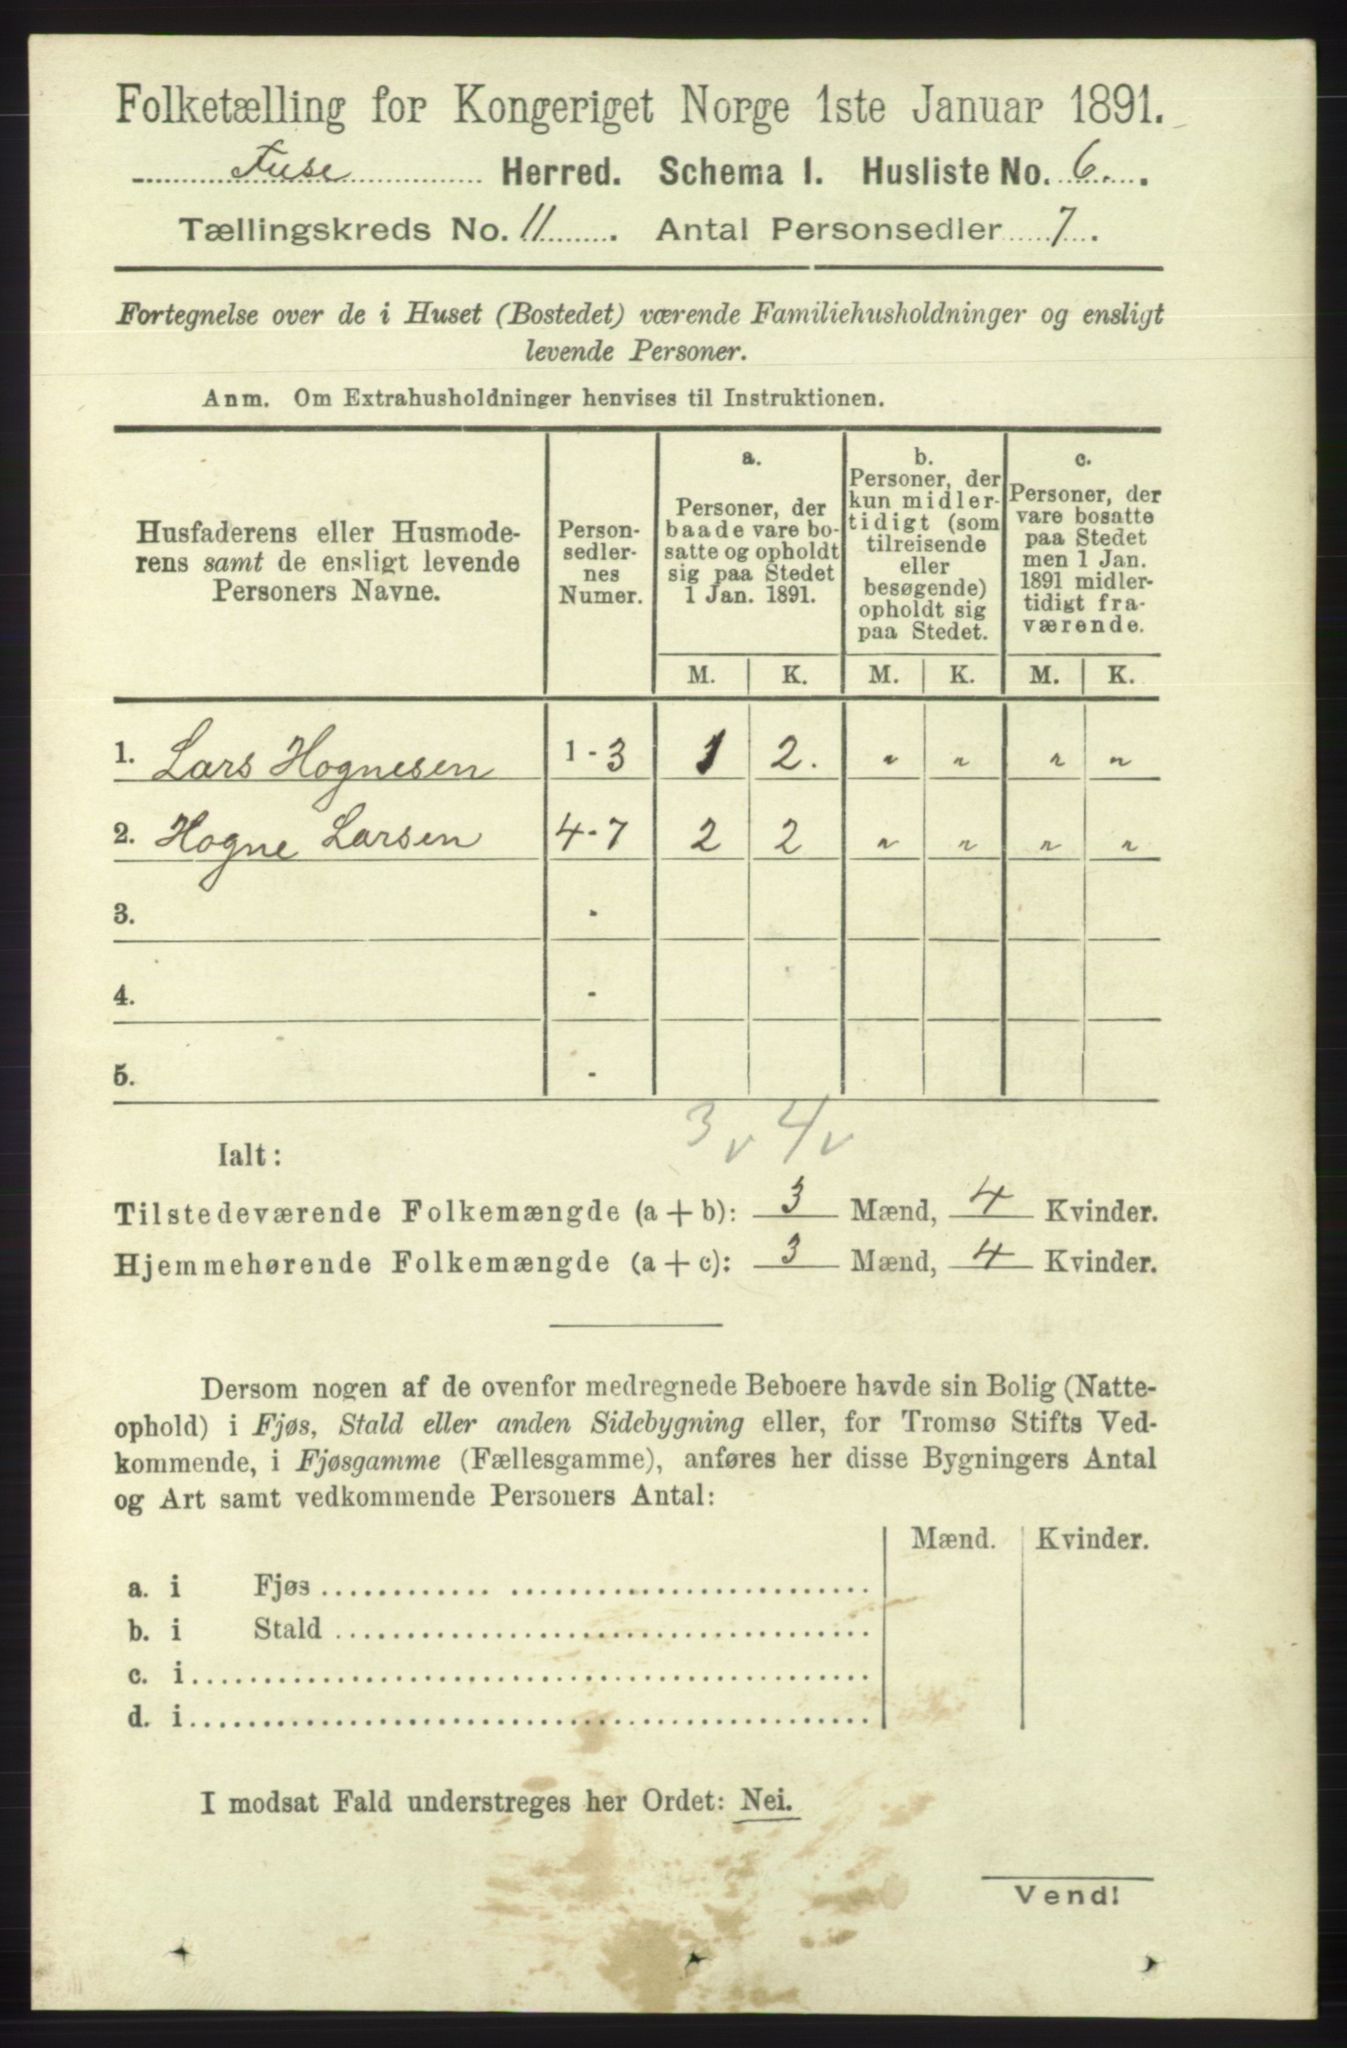 Folketælling for Kongeriget Norge 1ste Januar 1891.
Fuse Herred. Schema 1. Husliste No. 6.
Tællingskreds No. 11. Antal Personsedler 7.
Fortegnelse over de i Huset (Bostedet) værende Familiehusholdninger og ensligt
levende Personer.
Anm. Om Extrahusholdninger henvises til Instruktionen.
Husfaderens eller Husmode-
rens samt de ensligt levende
Personers Navne.
Person-
sedler-
nes
Numer.
a.
Personer, der
baade vare bo-
satte og opholdt
sig paa Stedet
1 Jan. 1891.
b.
Personer, der
kun midler-
tidigt (som
tilreisende
eller
besøgende)
opholdt sig
paa Stedet.
c.
Personer, der
vare bosatte
paa Stedet
men 1 Jan.
1891 midler-
tidigt fra-
værende.
M. K. M. K. M. K.
1. Lars Hognesen 1-3 1 2. " " " "
2. Hogne Larsen 4-7 2 2 " " " "
3. -
4. -
5. -
3 v 4 v
Ialt:
Tilstedeværende Folkemængde (a + b): 3 Mænd, 4 Kvinder.
Hjemmehørende Folkemængde (a + c): 3 Mænd, 4 Kvinder.
Dersom nogen af de ovenfor medregnede Beboere havde sin Bolig (Natte-
ophold) i Fjøs, Stald eller anden Sidebygning eller, for Tromsø Stifts Ved-
kommende, i Fjøsgamme (Fællesgamme), anføres her disse Bygningers Antal
og Art samt vedkommende Personers Antal:
Mænd. Kvinder.
a. i Fjøs
b. i Stald
c. i
d. i
I modsat Fald understreges her Ordet: Nei.
Vend!